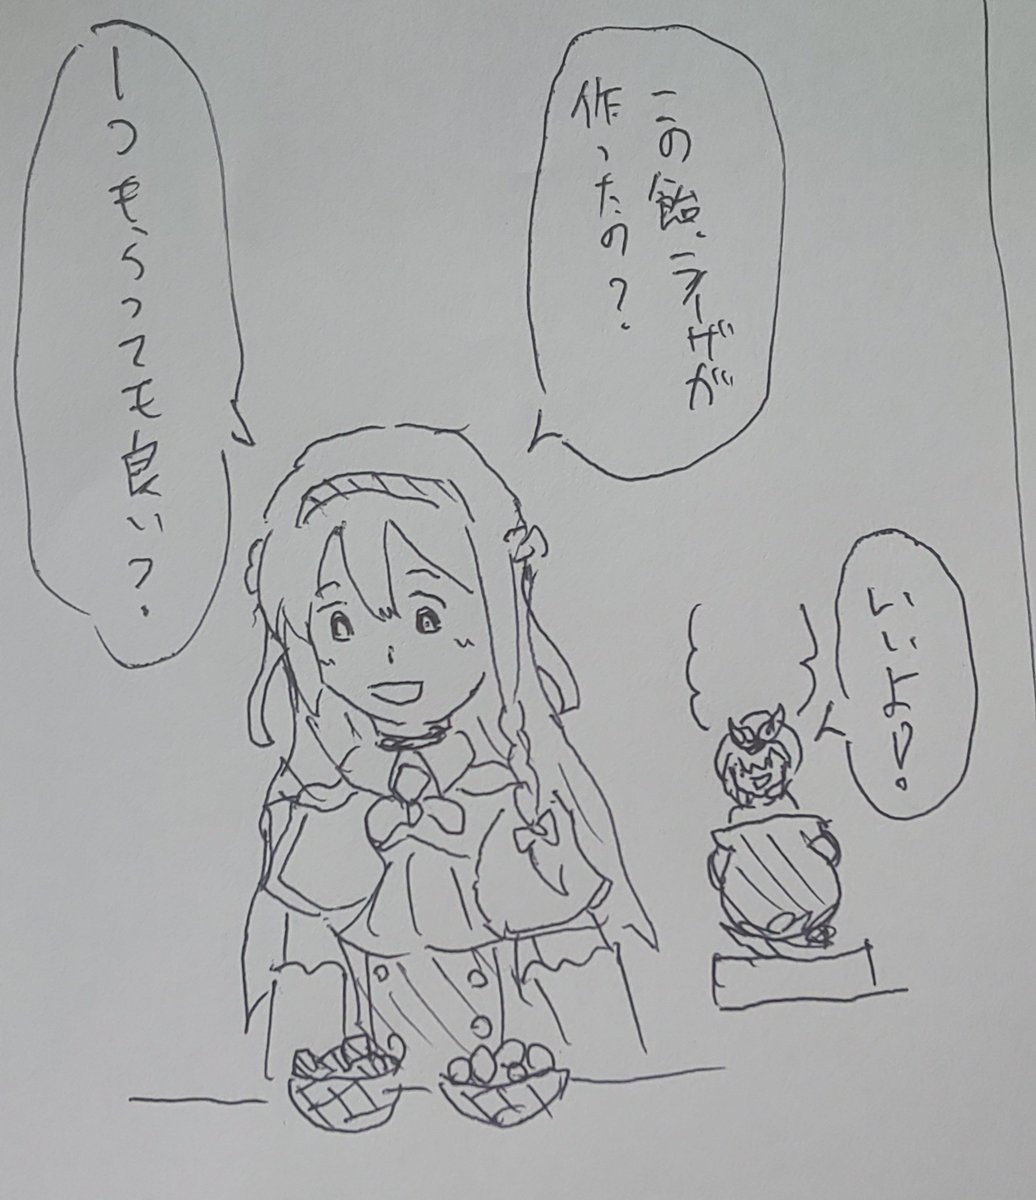 この飴、ライザが
作ったの?
一つもらっても良い?
いいよ♡